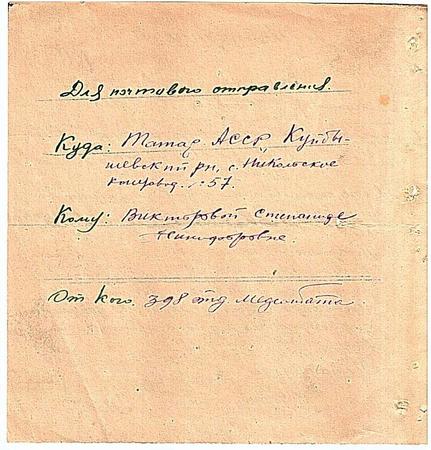 Для почтового отправления.
Куда: Татар АССР, Куйбы-
шевский рн, с. Никольское
п/я 57.
Кому: Викторовой Степаниде
Никифоровне.
От кого. 398 отд. Медсанбата.